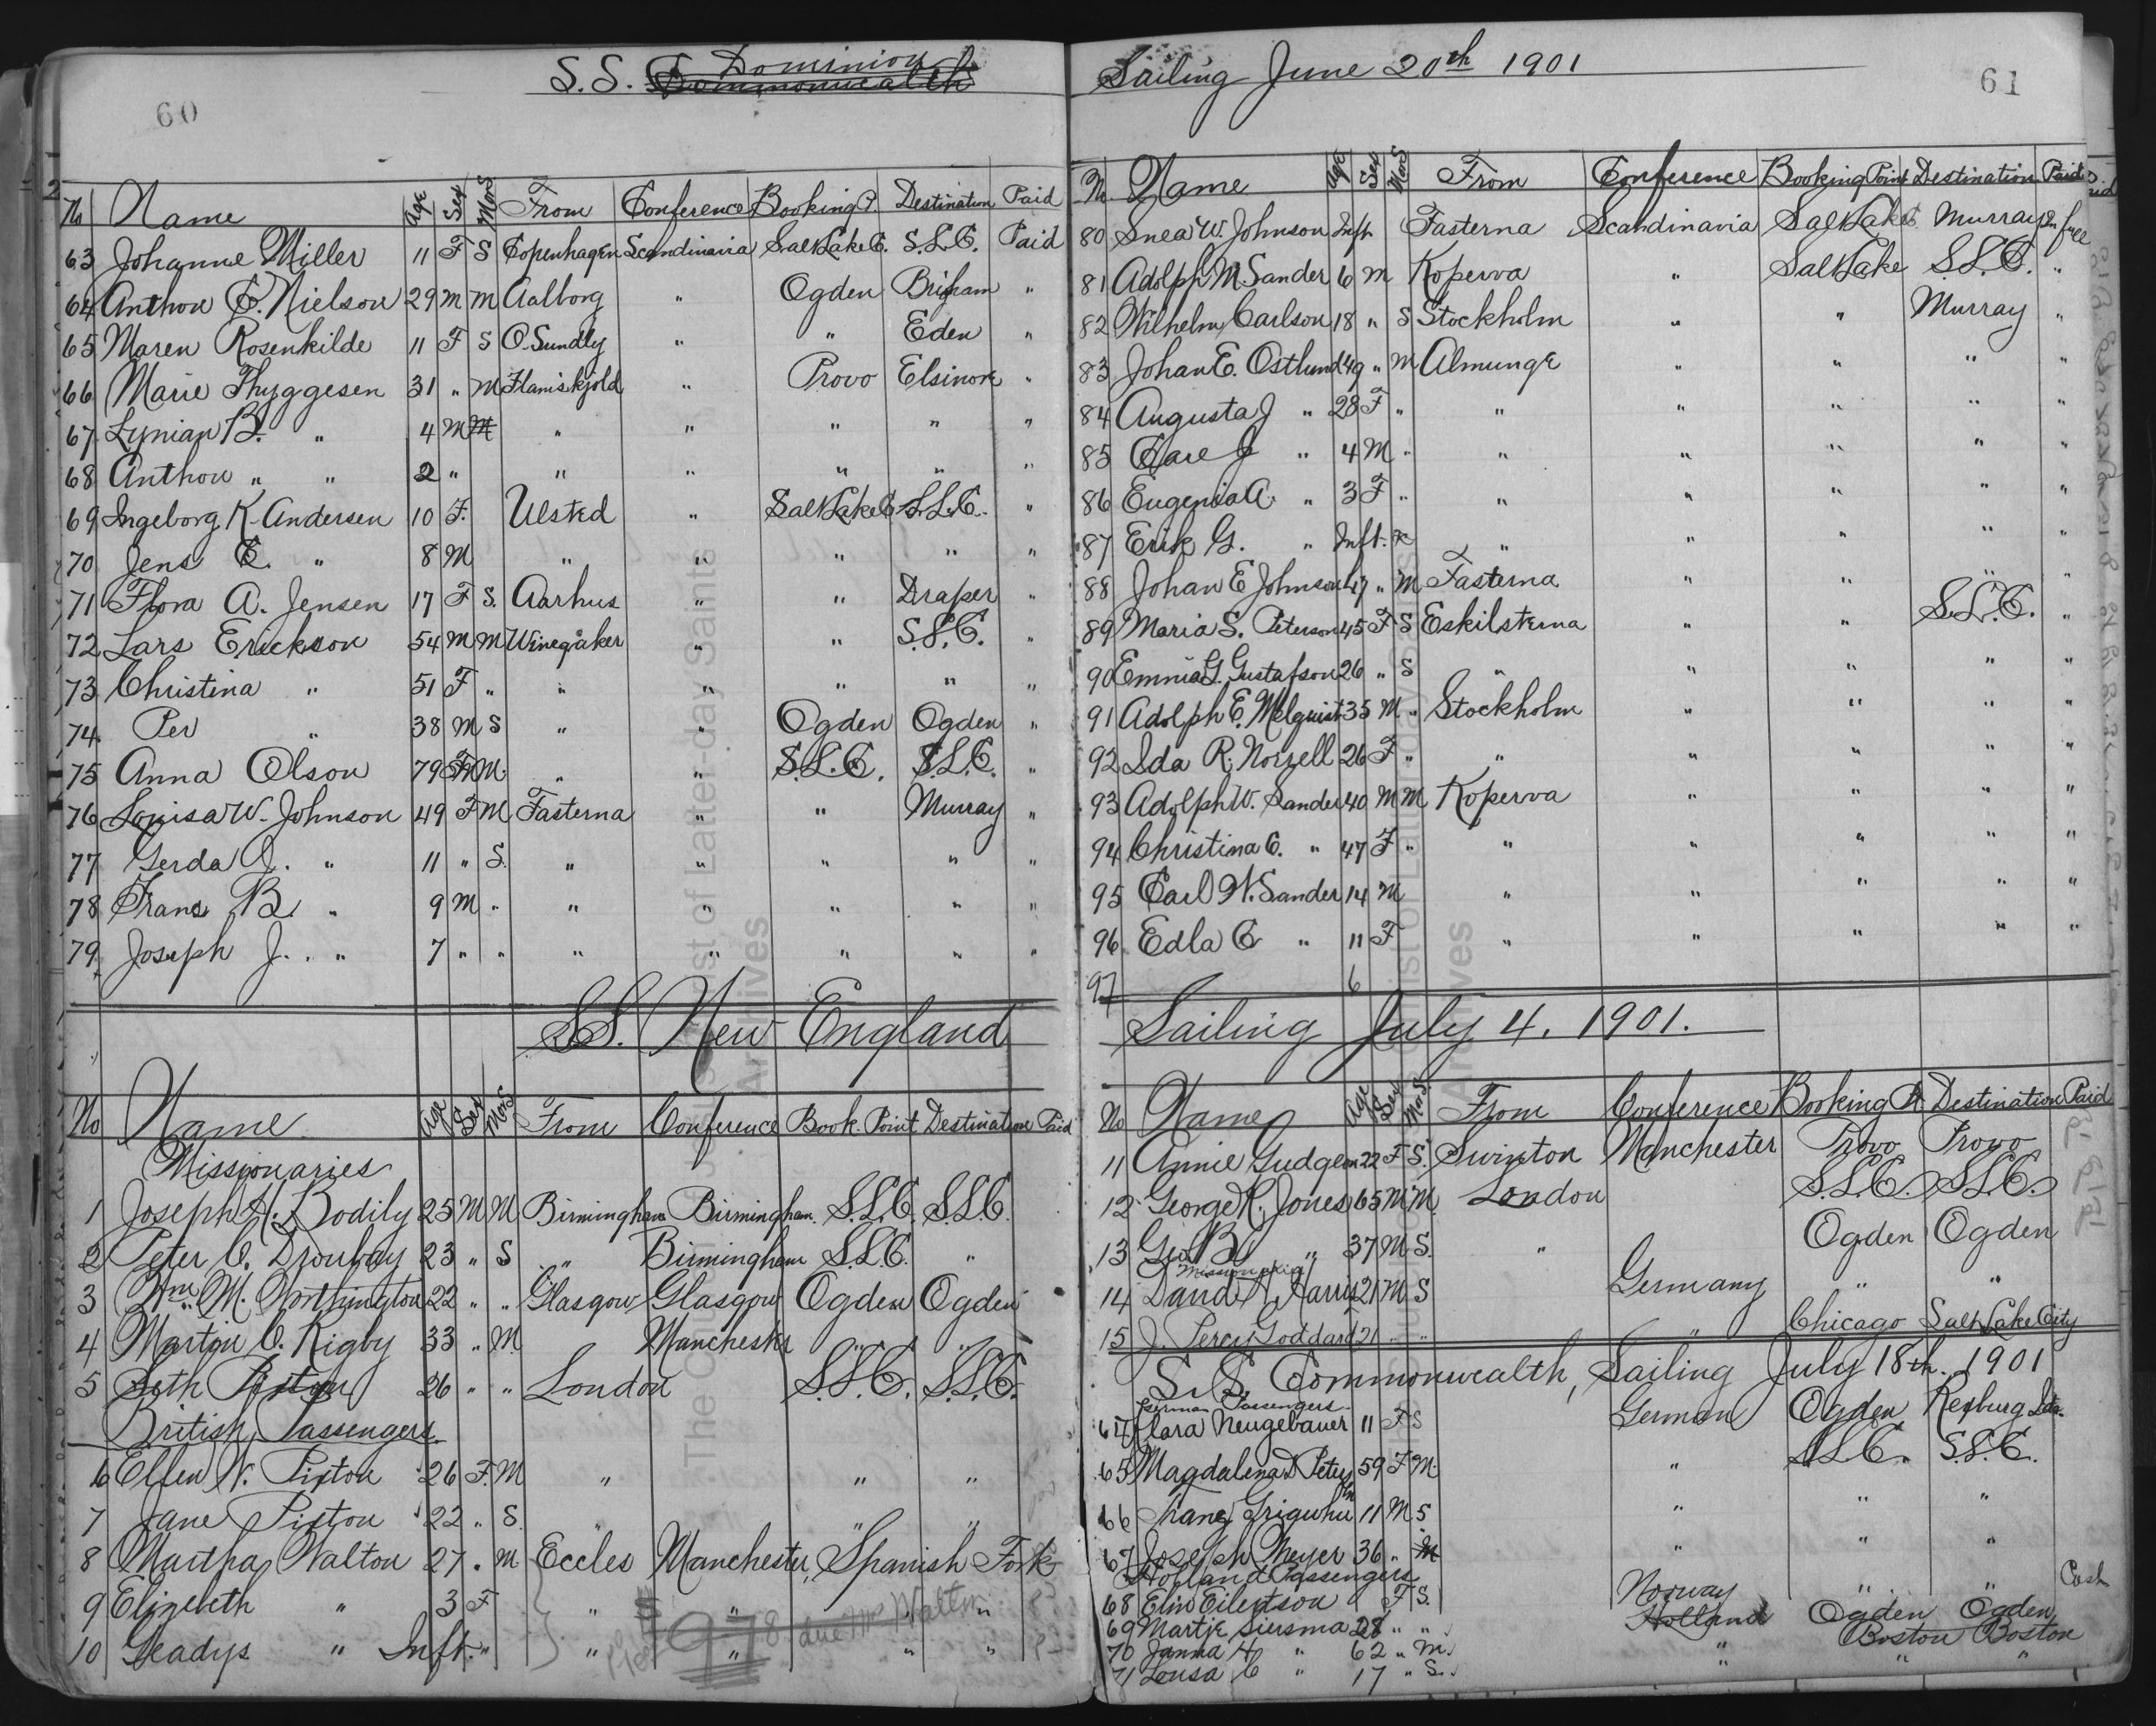 60
S.S. Commonwealth Dominion
No Name Age Sex M or S From Conference Booking P. Destination Paid
63 Johanne Miller 11 F S Copenhagen Scandinavia Salt Lake C. S.L.C. Paid
64 Anthon C. Nielson 29 M M Aalborg " Ogden Brigham "
65 Maren Rosenkilde 11 F S O. Sundby " " Eden "
66 Marie Thyggesen 31 " M Flamskjold " Provo Elsinore "
67 Lynian B. " 4 M M " " " " "
68 Anthon " " 2 " " " " " "
69 Ingeborg K. Andersen 10 F. Ulsted " Salt Lake C S.L.C. "
70 Jens C. " 8 M " " " " "
71 Flora A. Jensen 17 F S. Aarhus " " Draper "
72 Lars Erickson 54 M M Winegåker " " S.L.C. "
73 Christina " 51 F " " " " " "
74 Per " 38 M S " " Ogden Ogden "
75 Anna Olson 79 F M " " S.L.C. S.L.C. "
76 Louisa W. Johnson 49 F M Fasterna " " Murray "
77 Gerda A. " 11 " S. " " " " "
78 Frans B. " 9 M " " " " " "
79 Joseph J. " 7 " " " " " " "
S.S. New England
No Name Age Sex M or S From Conference Book. Point Destination Paid
Missionaries
1 Joseph H. Bodily 25 M M Birmingham Birmingham S.L.C. S.L.C.
2 Peter O. Droubay 23 " S " Birmingham S.L.C. "
3 Wm. M. Worthington 22 " " Glasgow Glasgow Ogden Ogden
4 Martin O. Rigby 33 " M Manchester " "
5 Seth Pixton 26 " " London S.L.C. S.L.C.
British Passengers
6 Ellen N. Pixton 26 F. M " " "
7 Jane Pixton 22 " S. " " "
8 Martha Walton 27 " M Eccles Manchester, Spanish Fork
9 Elizebeth " 3 F " " " "
10 Gladys " Inft. " " " " "
978 due Mrs Walton
61
Sailing June 20th 1901
No Name Age Sex M or S From Conference Booking Point Destination Paid
80 Snea W. Johnson Inft Fasterna Scandinavia Salt Lake C Murray In full
81 Adolph M. Sander 6 M Koperva " Salt Lake S.L.C. "
82 Wilhelm Carlson 18 " S Stockholm " " Murray "
83 Johan E. Ostlund 49 " M Almunge " " " "
84 Augusta J " 28 F " " " " " "
85 Care J " 4 M " " " " " "
86 Eugenia A. " 3 F " " " " " "
87 Erik G. " Inft. " " " " "
88 Johan E Johnson 47 " M Fasterna " " " "
89 Maria S. Peterson 45 F S Eskilsterna " " S.L.C. "
90 Emma G. Gustafson 26 " S " " " " "
91 Adolph E. Melquist 35 M " Stockholm " " " "
92 Ida R. Norzell 26 F " " " " " "
93 Adolph W. Sander 40 M M Koperva " " " "
94 Christina C. " 47 F " " " " "
95 Carl W. Sander 14 M " " " " "
96 Edla C " 11 F " " " " "
97 6
Sailing July 4. 1901.
No Name Age Sex M or S. From Conference Booking Pt. Destination Paid
11 Annie Gudgeon 22 F S. Swinton Manchester Provo Provo
12 George H. Jones 65 M M. London S.L.C. S.L.C.
13 Geo B. " 37 M S. " Ogden Ogden
Missionaries
14 David H. Harris 21 M S Germany " "
15 J. Percy Goddard 21 " " " Chicago Salt Lake City
S.S. Commonwealth, Sailing July 18th. 1901
German Passengers
64 Clara Neugebauer 11 F S German Ogden Rexburg Ida.
65 Magdalena D Peters 59 F M " S.L.C. S.L.C.
66 11 M S " " "
67 Joseph Meyer 36 " M " " "
Holland Passengers
68 Elin Eilertson F S. Norway " " Cash
69 Martje Siersma 28 " " Holland Ogden Ogden
70 Janna H " 62 " M. " Boston Boston
71 Lousa C " 17 " S. " " "
The Church of Jesus Christ of Latter-day Saints
Archives